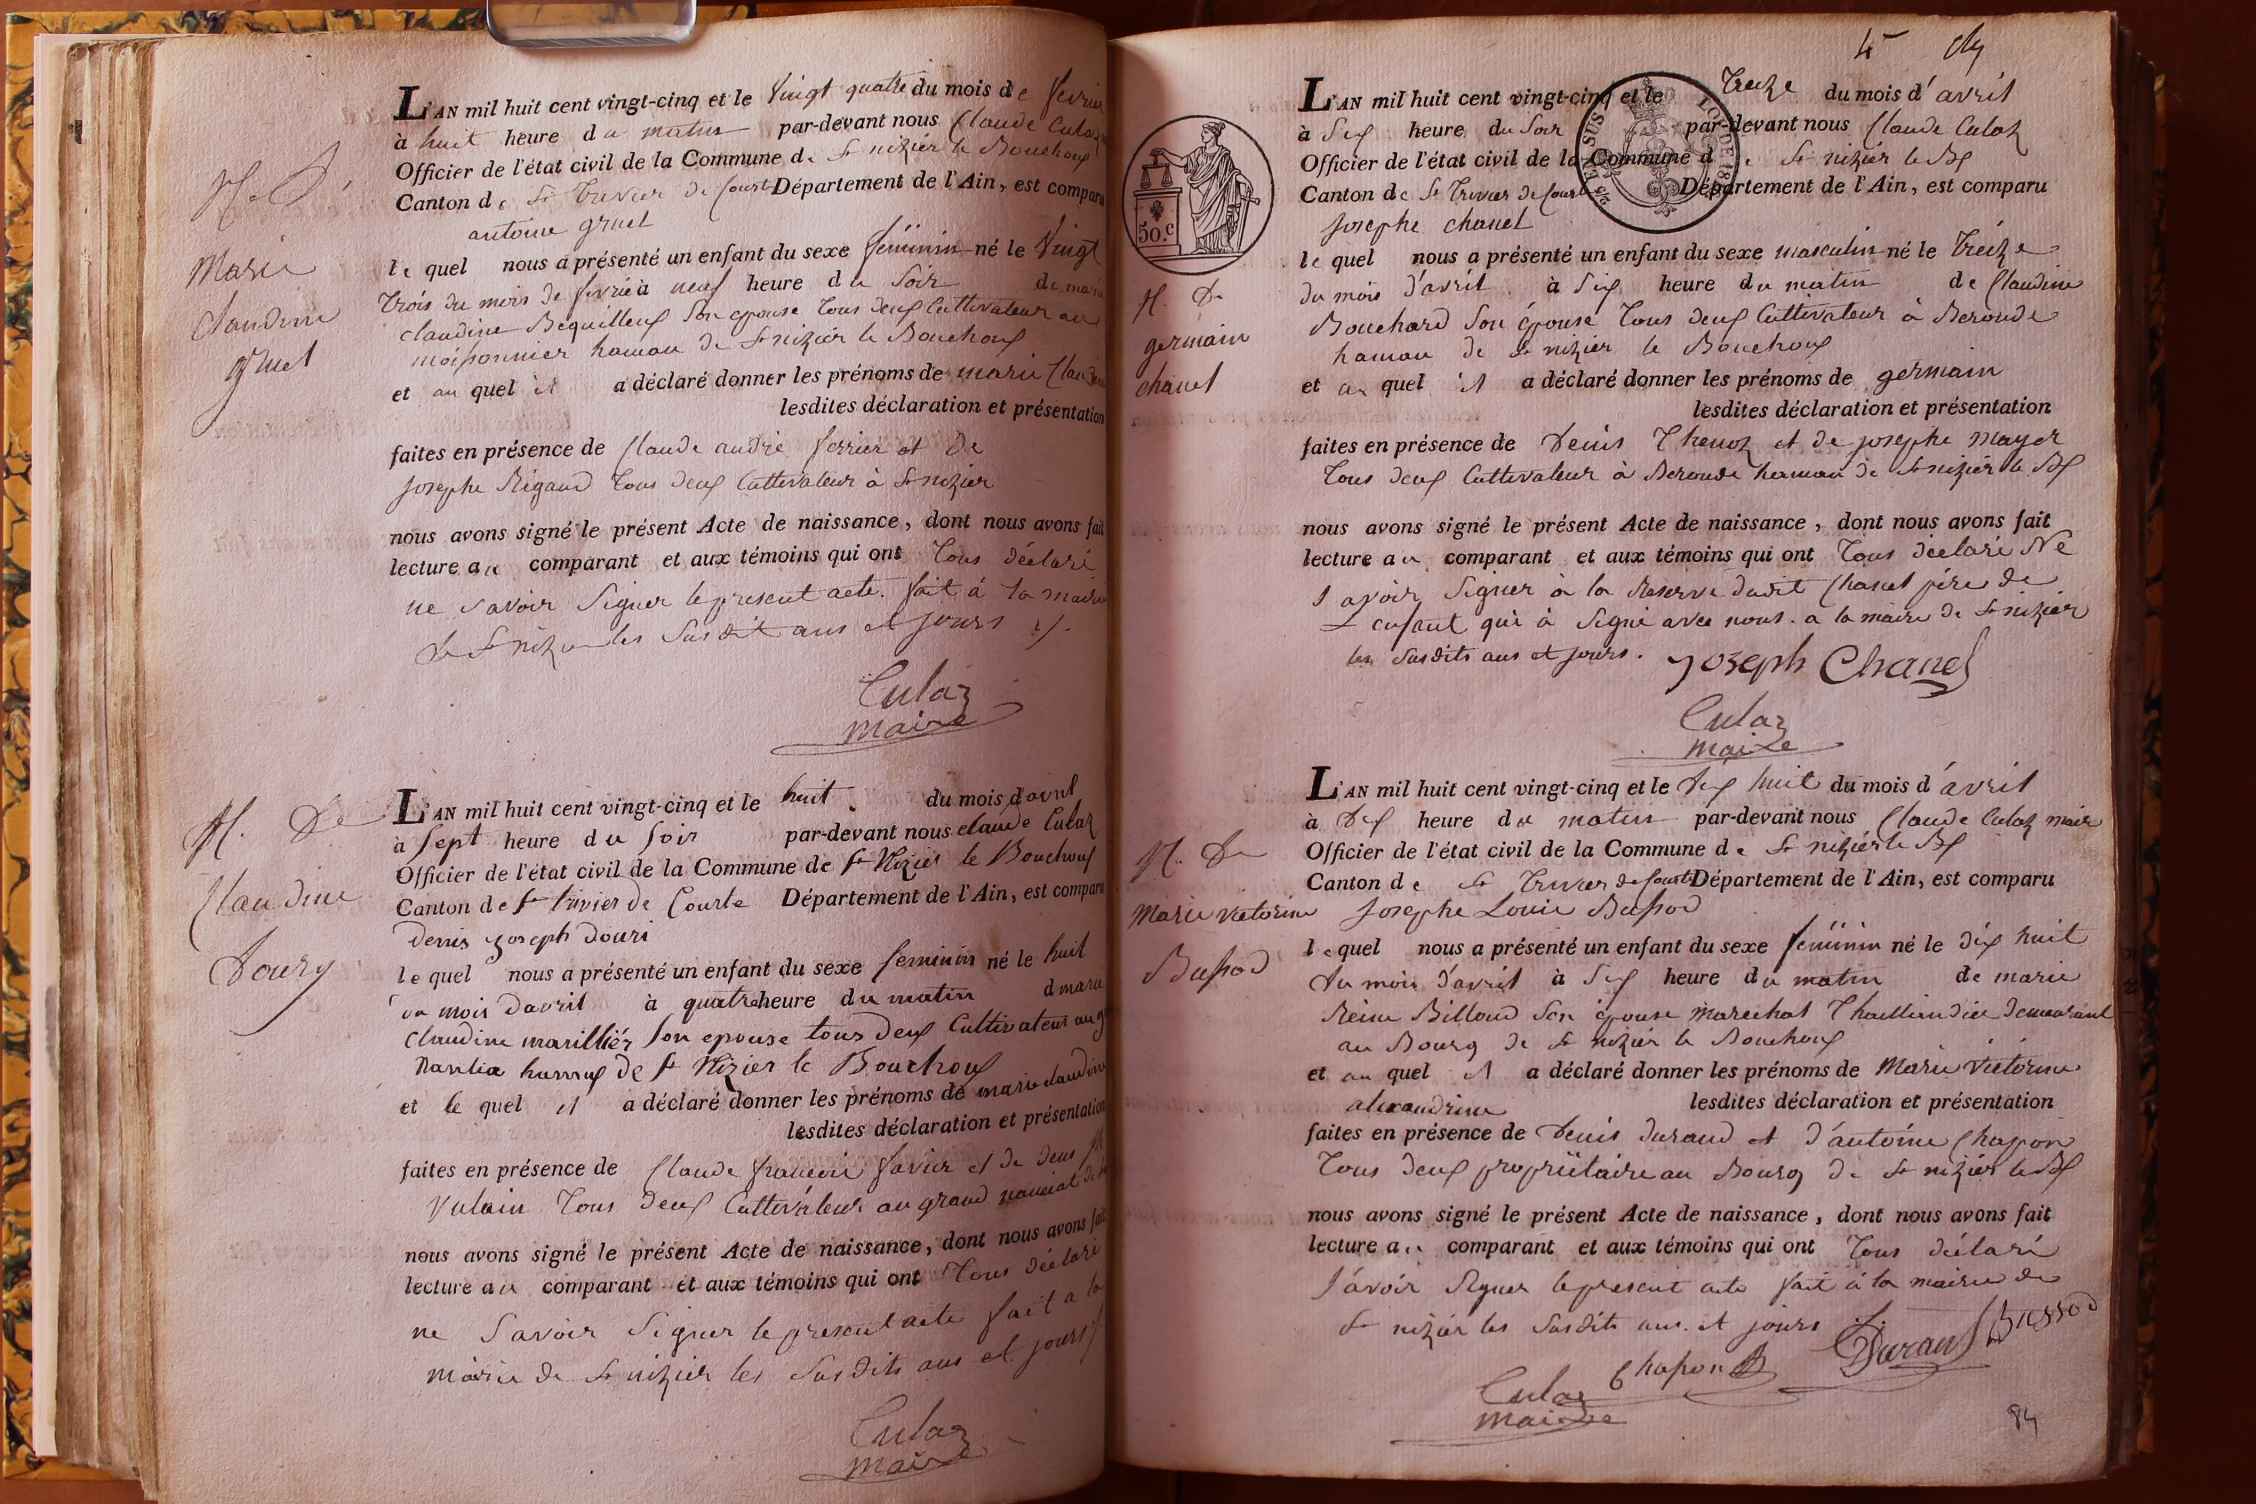 N. De
Marie
claudine
gruel
L'AN mil huit cent vingt-cinq et le Vingt quatre du mois de fevrier
à huit heure du matin par-devant nous Claude Culaz
Officier de l'état civil de la Commune de St nizier le Bouchoux
Canton de St Trivier de Courte Département de l'Ain, est comparu
antoine gruel
le quel nous a présenté un enfant du sexe féminin né le Vingt
trois du mois de fevrié à neuf heure du Soir de marie
claudine Bequilleux son epouse tous deux Cultivateur au
moissonnier hamau de St nizier le Bouchoux
et au quel il a déclaré donner les prénoms de marie Claudine
lesdites déclaration et présentation
faites en présence de Claude andré ferrier et De
Josephe Rigaud tous deux Cultivateur à St nizier
nous avons signé le présent Acte de naissance, dont nous avons fait
lecture au comparant et aux témoins qui ont Tous déclaré
ne savoir Signer le present acte. fait à la mairie
de St nizier les Susdit ans et jours
Culaz
maire
N. De
Claudine
Doury
L'AN mil huit cent vingt-cinq et le huit du mois d'avril
à Sept heure du Soir par-devant nous claude Culaz
Officier de l'état civil de la Commune de St Nizier le Bouchoux
Canton de St trivier de Courte Département de l'Ain, est comparu
Denis joseph Douri
le quel nous a présenté un enfant du sexe feminin né le huit
du mois Davril à quatre heure du matin d marie
Claudine marilliér Son epouse tous deux Cultivateur au
Nantia hamux de St Nizier le Bouchoux
et le quel il a déclaré donner les prénoms de marie claudine
lesdites déclaration et présentation
faites en présence de Claude francois favier et de
Vulain Tous deux Cultivateur au grand
nous avons signé le présent Acte de naissance, dont nous avons fait
lecture au comparant et aux témoins qui ont Tous déclaré
ne Savoir Signer le present acte fait a la
mairie de St nizier les Susdits ans et jours
Culaz
maire
4
LOI DE 18
EN SUS
50.c
N. De
germain
chanel
L'AN mil huit cent vingt-cinq et le Treize du mois d'avril
à Six heure du Soir par-devant nous Claude Culaz
Officier de l'état civil de la Commune de St nizier le Bx
Canton de St Trivier de Courte Département de l'Ain, est comparu
Josephe chanel
le quel nous a présenté un enfant du sexe masculin né le Tréize
du mois d'avril à Six heure du matin de Claudine
Bouchard Son épouse Tous deux Cultivateur à Beronde
hamau de St nizier le Bouchoux
et au quel il a déclaré donner les prénoms de germain
lesdites déclaration et présentation
faites en présence de Denis Thenoz et de josephe Mayer
Tous deux Cultivateur à Beronde hamau de St nizier le Bx
nous avons signé le présent Acte de naissance, dont nous avons fait
lecture au comparant et aux témoins qui ont Tous déclaré Ne
Savoir Signer à la Reserve dudit Chanel père de
L enfant qui à Signé avec nous. a la mairie de St nizier
les Susdits ans et jours. Joseph Chanel
Culaz
maire
N. De
Marie victorine
Bussod
L'AN mil huit cent vingt-cinq et le Dix huit du mois d'avril
à Dix heure du matin par-devant nous Claude Culaz mair
Officier de l'état civil de la Commune de St nizier le Bx
Canton de St Trivier de Courte Département de l'Ain, est comparu
Josephe Louis Bussod
le quel nous a présenté un enfant du sexe féminin né le dix huit
du mois d'avril à Six heure du matin de marie
Reine Billoud Son épouse Marechal Thailliandier demeurant
au Bourg de St nizier le Bouchoux
et au quel il a déclaré donner les prénoms de Marie Victorine
alexandrine lesdites déclaration et présentation
faites en présence de Denis durand et d'antoine Chapon
Tous deux propriétaire au Bourg de St nizier le Bx
nous avons signé le présent Acte de naissance, dont nous avons fait
lecture au comparant et aux témoins qui ont Tous déclaré
Savoir Signer le present acte fait à la mairie de
St nizier les Susdits ans et jours
Durand Bussod
Chapon
Culaz
maire
84